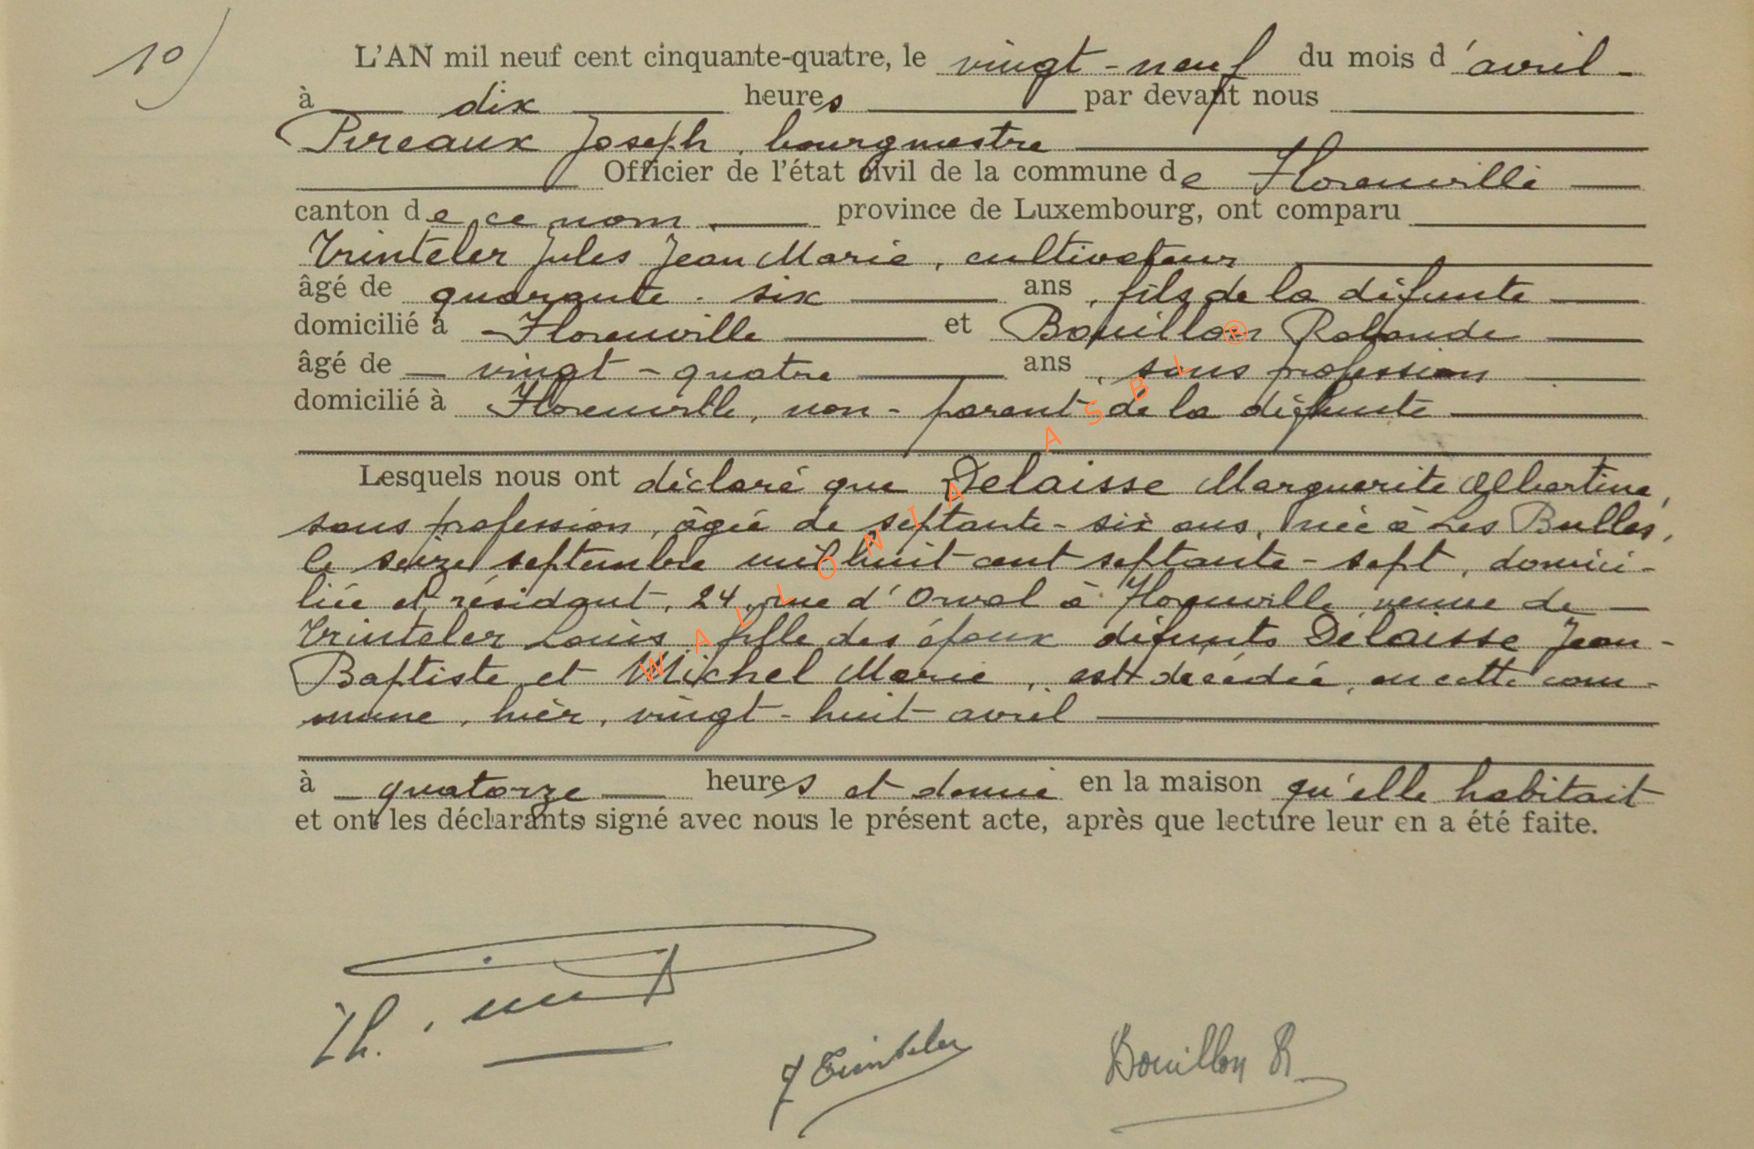 10)
L'AN mil neuf cent cinquante-quatre, le vingt-neuf du mois d'avril
à dix heures par devant nous
Pireaux Joseph, bourgmestre
Officier de l'état civil de la commune de Florenville
canton de ce nom, province de Luxembourg, ont comparu
Trinteler Jules Jean Marie, cultivateur
âgé de quarante-six ans, fils de la défunte
domicilié à Florenville et Bouillon Rolande
âgé de vingt-quatre ans, sans profession
domicilié à Florenville, non-parent de la défunte
Lesquels nous ont déclaré que Delaisse Marguerite Albertine,
sans profession, âgée de septante-six ans, née à Les Bulles,
le seize septembre mil huit cent septante-sept, domici-
liée et résidant, 24, rue d'Orval à Florenville, veuve de
Trinteler Louis, fille des époux défunts Delaisse Jean-
Baptiste et Michel Marie, est décédée, en cette com-
mune, hier, vingt-huit avril
à quatorze heures et demie en la maison qu'elle habitait
et ont les déclarants signé avec nous le présent acte, après que lecture leur en a été faite.
J Trinteler Bouillon R
WALLONIA ASBL ®